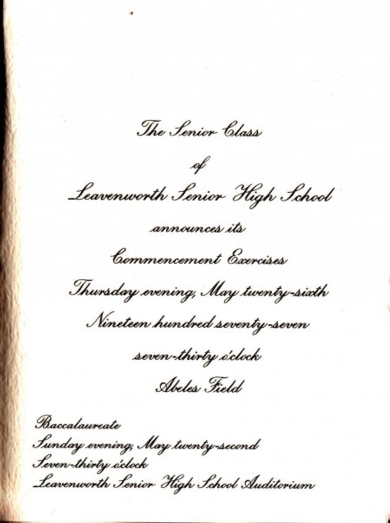 The Senior Class
of
Leavenworth Senior High School
announces its
Commencement Exercises
Thursday evening, May twenty-sixth
Nineteen hundred seventy-seven
seven-thirty o'clock
Abeles Field
Baccalaureate
Sunday evening, May twenty-second
Seven-thirty o'clock
Leavenworth Senior High School Auditorium